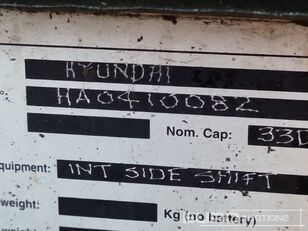 HYUNDAI
HA0410082
Nom. Cap: 33
quipment: INT SIDE SHIFT
weight: Kg (no battery)
weight: